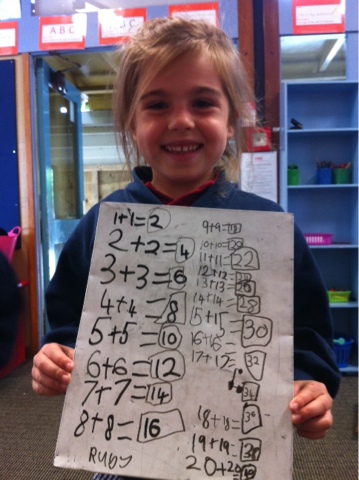 A B C
1+1=2
2+2=4
3+3=6
4+4=8
5+5=10
6+6=12
7+7=14
8+8=16
RUBY
9+9=18
10+10=20
11+11=22
12+12=
13+13=26
14+14=28
15+15=30
16+16=32
17+17=34
18+18=36
19+19=38
20+20=40